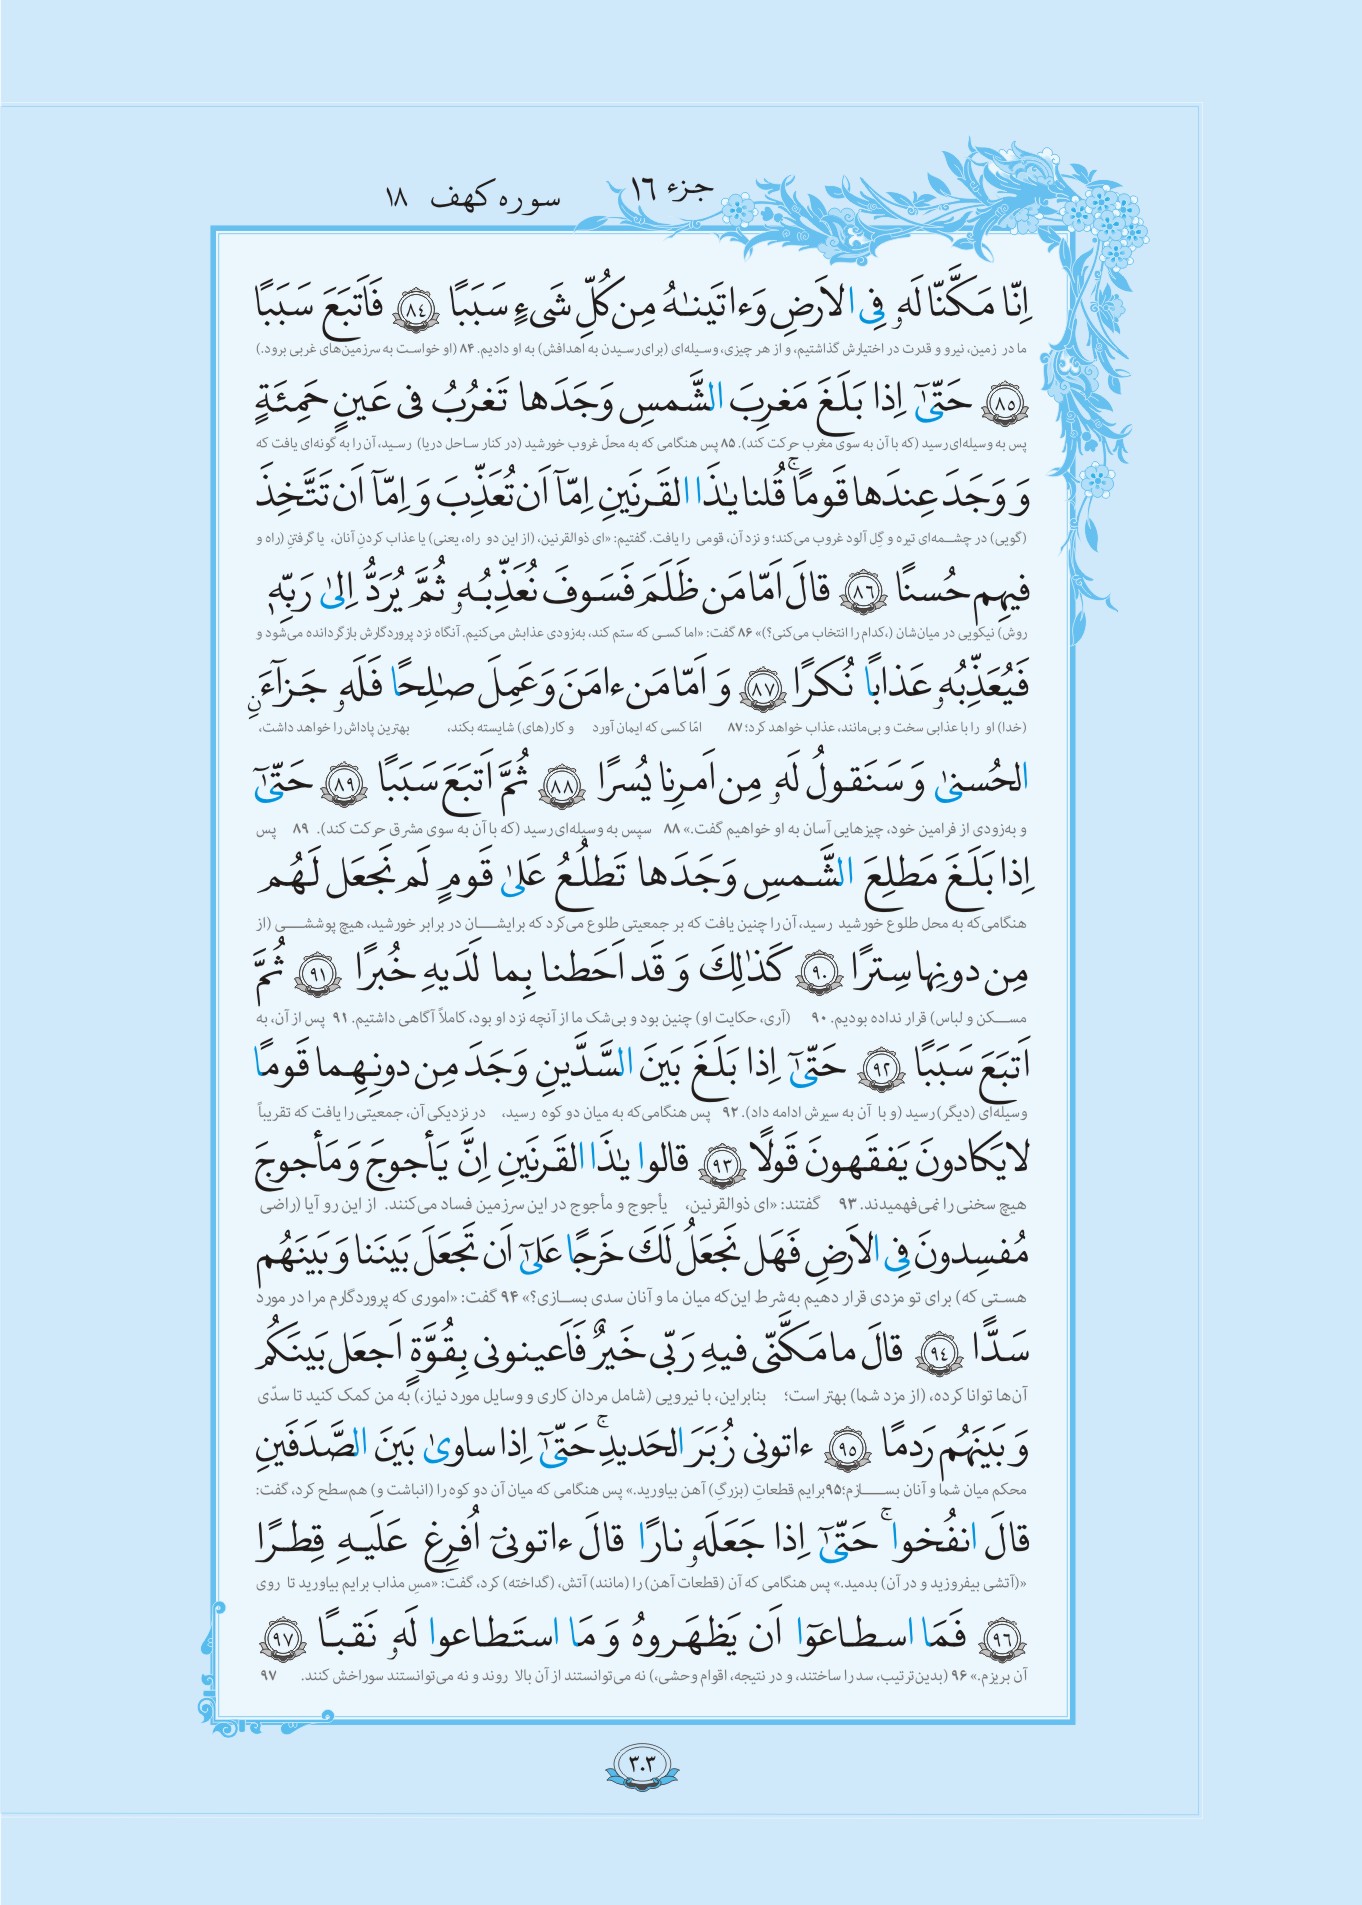 جزء ١٦
سوره کهف ١٨
اِنّا مَكَّنّا لَهٗ فِى الاَرضِ وَءاتَينٰهُ مِن كُلِّ شَىءٍ سَبَبًا ﴿٨٤﴾ فَاَتبَعَ سَبَبًا
ما در زمین، نیرو و قدرت در اختیارش گذاشتیم، و از هر چیزی، وسیله‌ای (برای رسیدن به اهدافش) به او دادیم. ۸۴ (او خواست به سرزمین‌های غربی برود.)
﴿٨٥﴾ حَتّىٰٓ اِذا بَلَغَ مَغرِبَ الشَّمسِ وَجَدَها تَغرُبُ فى عَينٍ حَمِئَةٍ
پس به وسیله‌ای رسید (که با آن به سوی مغرب حرکت کند). ۸۵ پس هنگامی که به محلّ غروب خورشید (در کنار ساحل دریا) رسید، آن را به گونه‌ای یافت که
وَ وَجَدَ عِندَها قَومًا ۚ قُلنا يٰذَا القَرنَينِ اِمّآ اَن تُعَذِّبَ وَ اِمّآ اَن تَتَّخِذَ
(گویی) در چشمه‌ای تیره و گِل آلود غروب می‌کند؛ و نزد آن، قومی را یافت. گفتیم: «ای ذوالقرنین، (از این دو راه، یعنی) یا عذاب کردنِ آنان، یا گرفتنِ (راه و
فيهِم حُسنًا ﴿٨٦﴾ قالَ اَمّا مَن ظَلَمَ فَسَوفَ نُعَذِّبُهٗ ثُمَّ يُرَدُّ اِلىٰ رَبِّهٖ
روش) نیکویی در میان‌شان (،کدام را انتخاب می‌کنی؟)» ۸۶ گفت: «اما کسی که ستم کند، به‌زودی عذابش می‌کنیم. آنگاه نزد پروردگارش بازگردانده می‌شود و
فَيُعَذِّبُهٗ عَذابًا نُكرًا ﴿٨٧﴾ وَ اَمّا مَن ءامَنَ وَعَمِلَ صٰلِحًا فَلَهٗ جَزآءَنِ
(خدا) او را با عذابی سخت و بی‌مانند، عذاب خواهد کرد؛ ۸۷ امّا کسی که ایمان آورد و کار(های) شایسته بکند، بهترین پاداش را خواهد داشت،
الحُسنىٰ وَ سَنَقولُ لَهٗ مِن اَمرِنا يُسرًا ﴿٨٨﴾ ثُمَّ اَتبَعَ سَبَبًا ﴿٨٩﴾ حَتّىٰٓ
و به‌زودی از فرامین خود، چیزهایی آسان به او خواهیم گفت.» ۸۸ سپس به وسیله‌ای رسید (که با آن به سوی مشرق حرکت کند). ۸۹ پس
اِذا بَلَغَ مَطلِعَ الشَّمسِ وَجَدَها تَطلُعُ عَلىٰ قَومٍ لَم نَجعَل لَهُم
هنگامی‌که به محل طلوع خورشید رسید، آن را چنین یافت که بر جمعیتی طلوع می‌کرد که برایشان در برابر خورشید، هیچ پوششی (از
مِن دونِها سِترًا ﴿٩٠﴾ كَذٰلِكَ وَ قَد اَحَطنا بِما لَدَيهِ خُبرًا ﴿٩١﴾ ثُمَّ
مسکن و لباس) قرار نداده بودیم. ۹۰ (آری، حکایت او) چنین بود و بی‌شک ما از آنچه نزد او بود، کاملاً آگاهی داشتیم. ۹۱ پس از آن، به
اَتبَعَ سَبَبًا ﴿٩٢﴾ حَتّىٰٓ اِذا بَلَغَ بَينَ السَّدَّينِ وَجَدَ مِن دونِهِما قَومًا
وسیله‌ای (دیگر) رسید (و با آن به سیرش ادامه داد). ۹۲ پس هنگامی‌که به میان دو کوه رسید، در نزدیکی آن، جمعیتی را یافت که تقریباً
لا يَكادونَ يَفقَهونَ قَولًا ﴿٩٣﴾ قالوا يٰذَا القَرنَينِ اِنَّ يَأجوجَ وَ مَأجوجَ
هیچ سخنی را نمی‌فهمیدند. ۹۳ گفتند: «ای ذوالقرنین، یأجوج و مأجوج در این سرزمین فساد می‌کنند. از این رو آیا (راضی
مُفسِدونَ فِى الاَرضِ فَهَل نَجعَلُ لَكَ خَرجًا عَلىٰٓ اَن تَجعَلَ بَينَنا وَ بَينَهُم
هستی که) برای تو مزدی قرار دهیم به‌شرط این‌که میان ما و آنان سدی بسازی؟» ۹۴ گفت: «اموری که پروردگارم مرا در مورد
سَدًّا ﴿٩٤﴾ قالَ ما مَكَّنّى فيهِ رَبّى خَيرٌ فَاَعينونى بِقُوَّةٍ اَجعَل بَينَكُم
آن‌ها توانا کرده، (از مزد شما) بهتر است؛ بنابراین، با نیرویی (شامل مردان کاری و وسایل مورد نیاز،) به من کمک کنید تا سدّی
وَ بَينَهُم رَدمًا ﴿٩٥﴾ ءاتونى زُبَرَ الحَديدِ ۚ حَتّىٰٓ اِذا ساوىٰ بَينَ الصَّدَفَينِ
محکم میان شما و آنان بسازم؛ ۹۵ برایم قطعاتِ (بزرگِ) آهن بیاورید.» پس هنگامی که میان آن دو کوه را (انباشت و) هم‌سطح کرد، گفت:
قالَ انفُخوا ۚ حَتّىٰٓ اِذا جَعَلَهٗ نارًا قالَ ءاتونىٓ اُفرِغ عَلَيهِ قِطرًا
«(آتشی بیفروزید و در آن) بدمید.» پس هنگامی که آن (قطعات آهن) را (مانند) آتش، (گداخته) کرد، گفت: «مسِ مذاب برایم بیاورید تا روی
﴿٩٦﴾ فَمَا اسطاعوٓا اَن يَظهَروهُ وَ مَا استَطاعوا لَهٗ نَقبًا ﴿٩٧﴾
آن بریزم.» ۹۶ (بدین‌ترتیب، سد را ساختند، و در نتیجه، اقوام وحشی،) نه می‌توانستند از آن بالا روند و نه می‌توانستند سوراخش کنند. ۹۷
۳۰۳